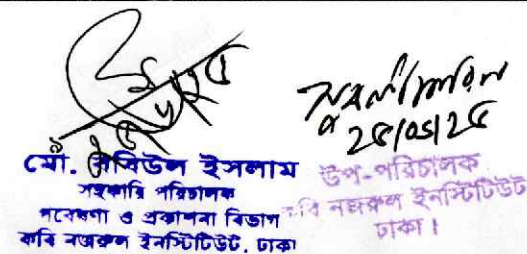 ২৫/০৫/২৫
মো. রবিউল ইসলাম
সহকারি পরিচালক
গবেষণা ও প্রকাশনা বিভাগ
কবি নজরুল ইনস্টিটিউট, ঢাকা
উপ-পরিচালক
কবি নজরুল ইনস্টিটিউট
ঢাকা।